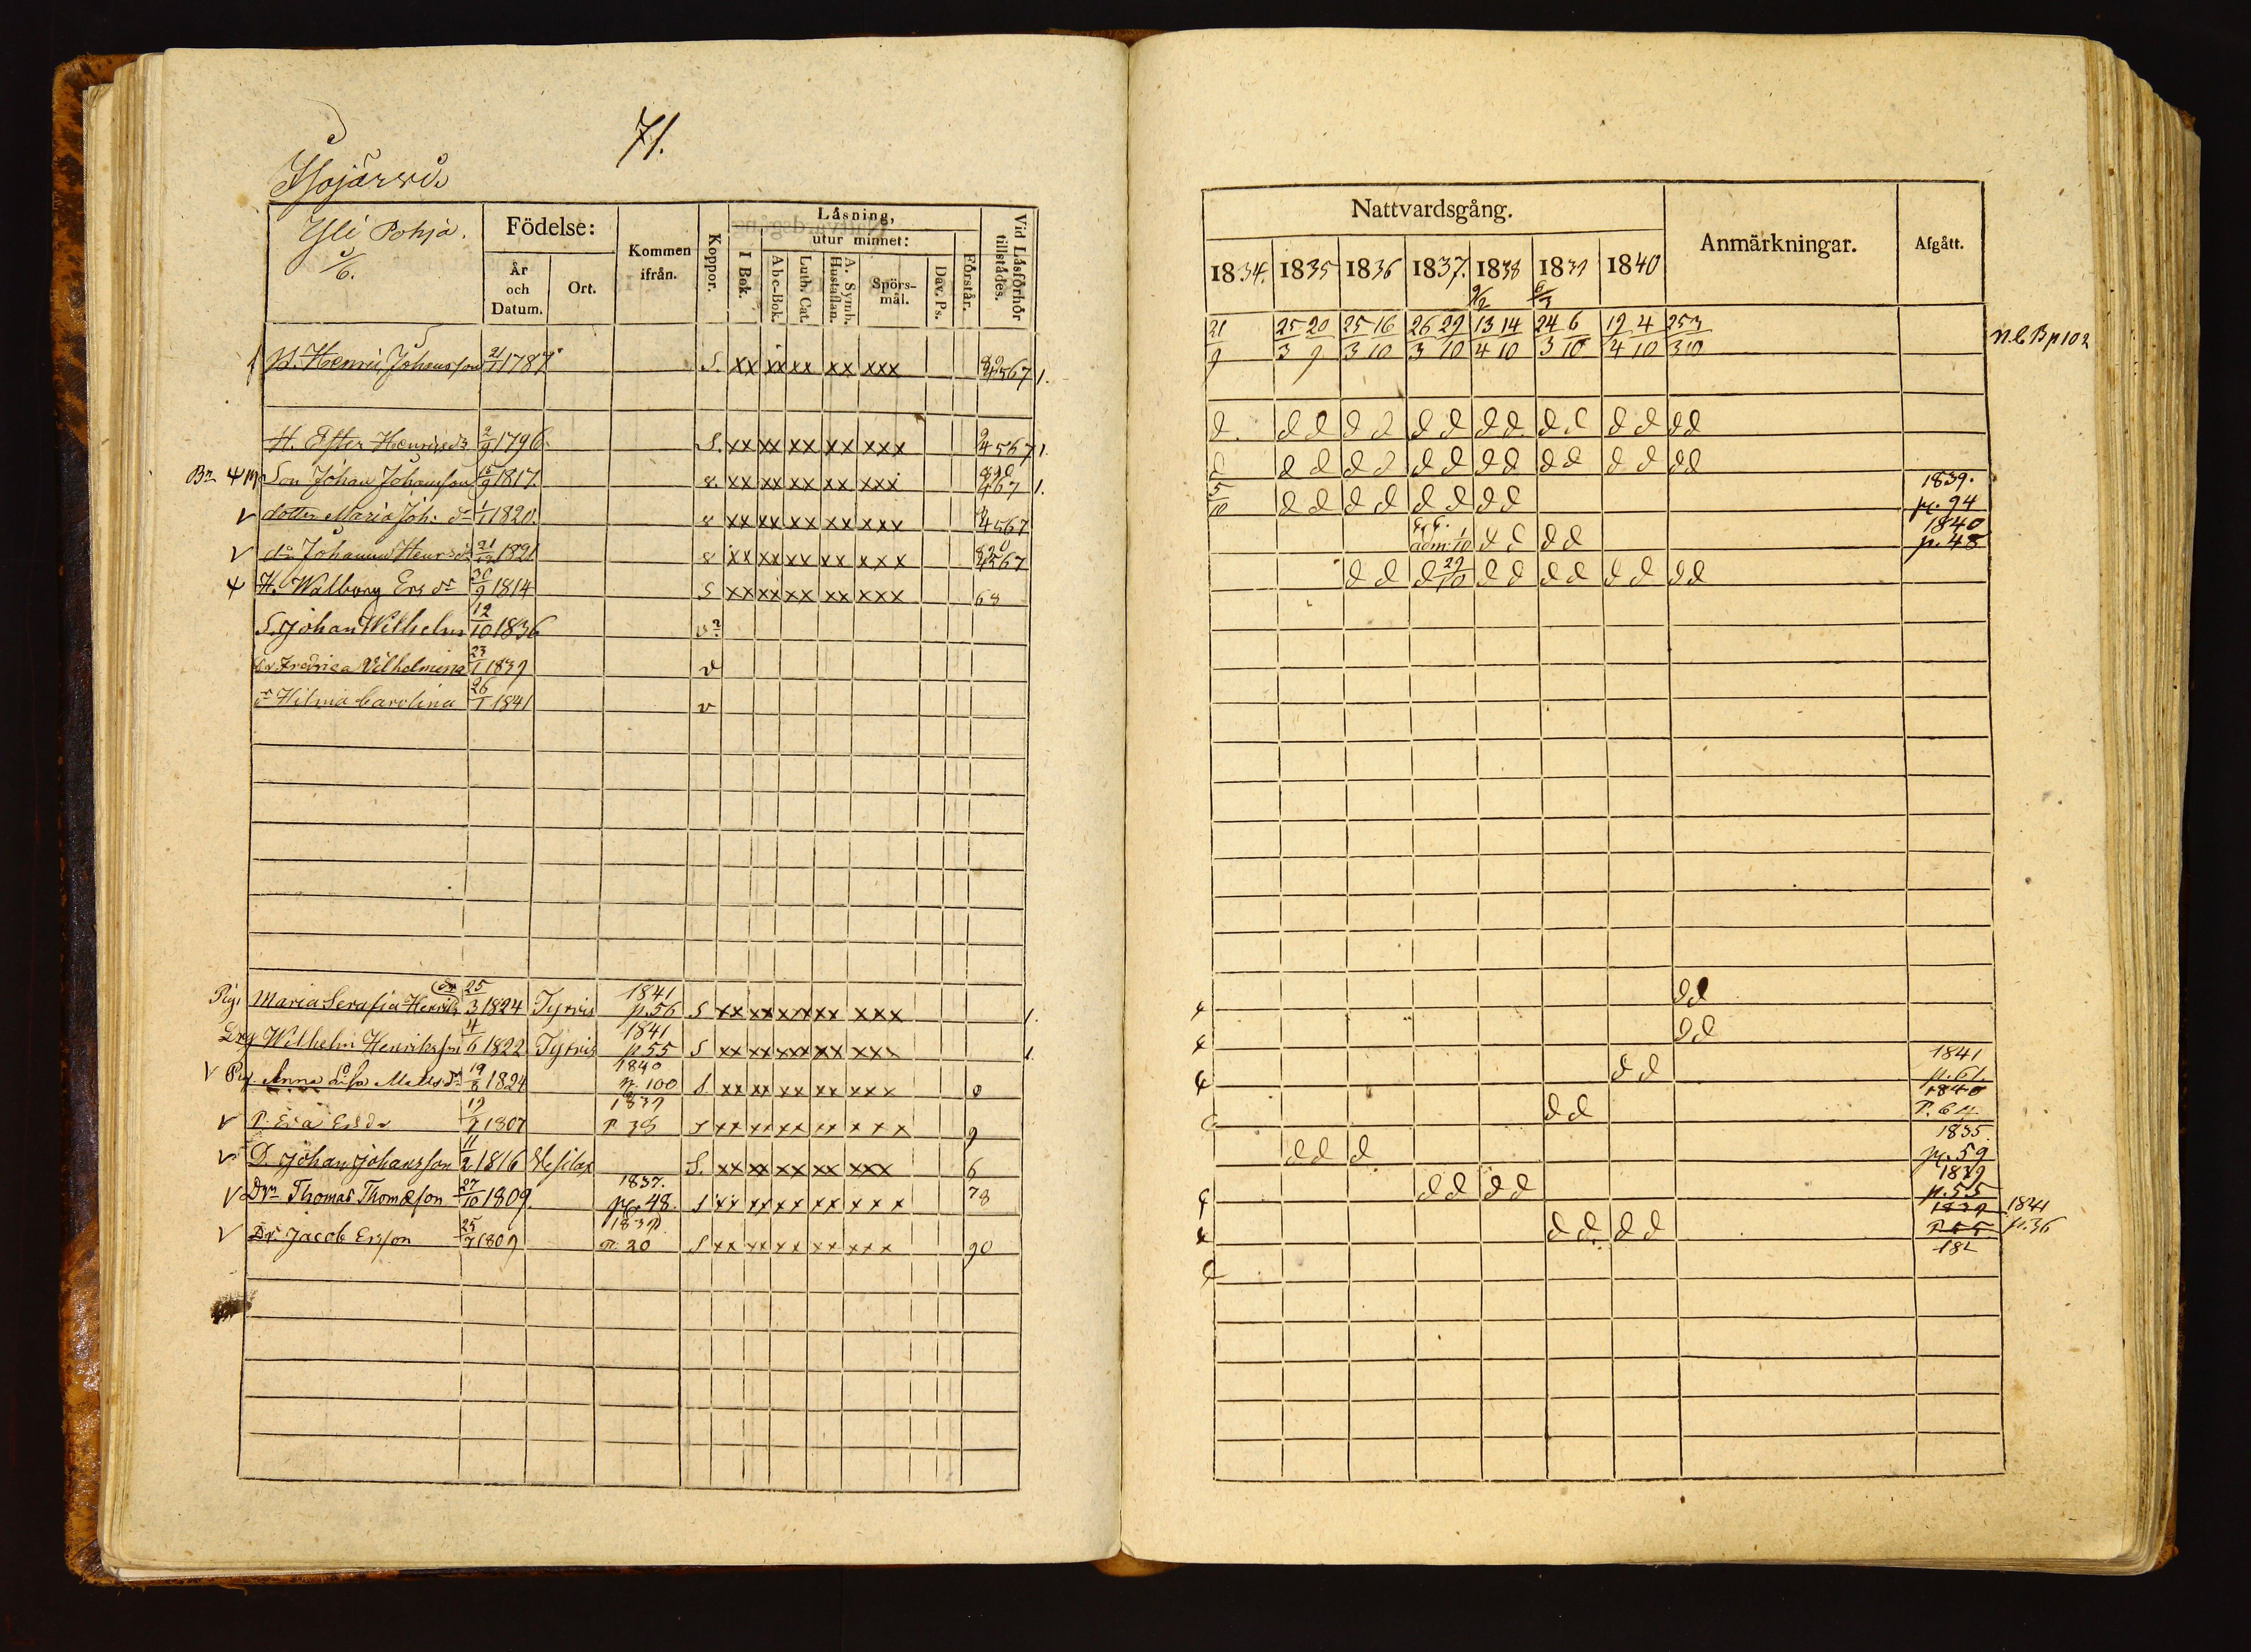 71.
Isojärwi
Yli Pohja.
1/6.
Födelse:
År och Datum.
Ort.
Kommen ifrån.
Koppor.
Läsning,
utur minnet:
I Bok.
Abc-Bok.
Luth. Cat.
A. Symb. Hustaflan.
Spörs-mål.
Dav. Ps.
Förstår.
Vid Läsförhör tillstädes.
B. Henric Johansson 21/1 1787 S. xx xx xx xx xxx 4567 1.
H. Ester Henricsdr 2/9 1796. S. xx xx xx xx xxx 4567 1.
Son Johan Johansson 15/9 1817. xx xx xx xx xxx 467 1.
dotter Maria Joh. dr 1820. xx xx xx xx xxx 4567
dr Johanna Henrsdr 21/12 1821 xx xx xx xx xxx 4567
H. Walborg Ers dr 30/9 1814 S xx xx xx xx xxx 68
S. Johan Wilhelm 12/10 1836
dr Fredrica Vilhelmina 23/1 1839 v
dr Hilma Carolina 26/1 1841 v
Pig. Maria Serafia Henriks dr 25/3 1824 Tyrvis 1841 p.56 S xx xx xx xx xxx 1.
Drg Wilhelm Henriksson 4/6 1822 Tyrvis 1841 p55 S xx xx xxx xx xxx 1
V Pig. Anna Lisa Matts dr 19/8 1824 1840 p. 100 S xx xx xx xx xxx 0
V P. Eva Ersdr 19/ 1807 1839 P 38 S xx xx xx xx xxx 9
V D. Johan Johansson 11/2 1816 Vesilax S. xx xx xx xx xxx 6
V Drn Thomas Thomasson 27/10 1809. 1837. pg. 48. S xx xx xx xx xxx 78
V Dr. Jacob Ersson 25/7 1809 1839 P. 20 S xx xx xx xx xxx 90
Nattvardsgång.
Anmärkningar.
Afgått.
1834. 1835 1836 1837. 1838 1839 1840
21/9 25/3 20/9 25/3 16/10 26/3 29/10 13/4 14/10 24/3 6/10 12/4 4/10 25/3 3/10
N.C.B p 102
d. d d d d d d d d. d d d d dd
d d d d d d d d d d d d d dd
5/10 d d d d d d d d 1839. pg. 94
adm. 1/10 d d d d 1840 p. 48
d d d 29/10 d d d d d d dd
dd
dd
d d 1841 p.61.
d d 1840 P. 64.
d d d 1835. pg. 59
d d d d 1839 p.55
d d. d d 1839 1841 p.36
182